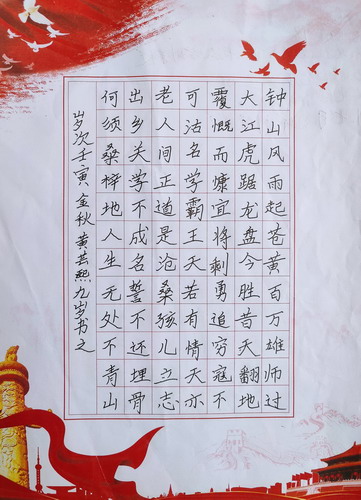 钟山风雨起苍黄百万雄师过
大江虎踞龙盘今胜昔天翻地
覆慨而慷宜将剩勇追穷寇不
可沽名学霸王天若有情天亦
老人间正道是沧桑孩儿立志
出乡关学不成名誓不还埋骨
何须桑梓地人生无处不青山
岁次壬寅金秋黄芸熙九岁书之